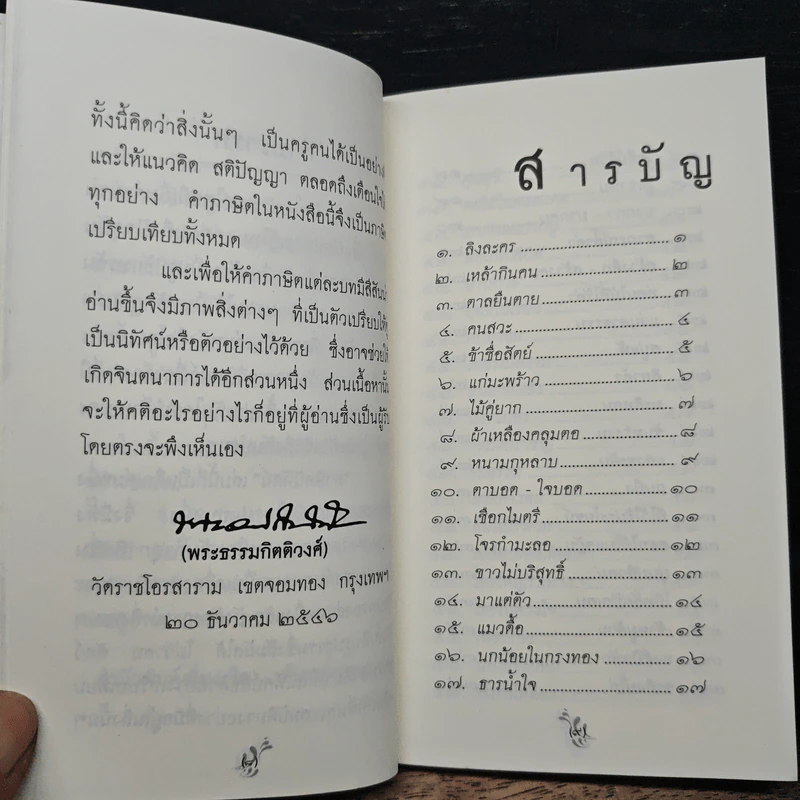 ทั้งนี้คิดว่าสิ่งนั้นๆ เป็นครูคนได้เป็นอย่าง
และให้แนวคิด สติปัญญา ตลอดถึงเตือนใจได้
ทุกอย่าง คำภาษิตในหนังสือนี้จึงเป็นภาษิต
เปรียบเทียบทั้งหมด
และเพื่อให้คำภาษิตแต่ละบทมีสีสัน
อ่านขึ้นจึงมีภาพสิ่งต่างๆ ที่เป็นตัวเปรียบให้
เป็นนิทัศน์หรือตัวอย่างไว้ด้วย ซึ่งอาจช่วยให้
เกิดจินตนาการได้อีกส่วนหนึ่ง ส่วนเนื้อหานั้น
จะให้คติอะไรอย่างไรก็อยู่ที่ผู้อ่านซึ่งเป็นผู้
โดยตรงจะพึงเห็นเอง
(พระธรรมกิตติวงศ์)
วัดราชโอรสาราม เขตจอมทอง กรุงเทพฯ
๒๐ ธันวาคม ๒๕๔๖
(๘)
สารบัญ
๑. ลิงละคร ........ ๑
๒. เหล้ากินคน ........ ๒
๓. ตาลยืนตาย ........ ๓
๔. คนสวะ ........ ๔
๕. ข้าซื่อสัตย์ ........ ๕
๖. แก่มะพร้าว ........ ๖
๗. ไม้คู่ยาก ........ ๗
๘. ผ้าเหลืองคลุมตอ ........ ๘
๙. หนามกุหลาบ ........ ๙
๑๐. ตาบอด - ใจบอด ........ ๑๐
๑๑. เชือกไมตรี ........ ๑๑
๑๒. โจรกำมะลอ ........ ๑๒
๑๓. ขาวไม่บริสุทธิ์ ........ ๑๓
๑๔. มาแต่ตัว ........ ๑๔
๑๕. แมวดื้อ ........ ๑๕
๑๖. นกน้อยในกรงทอง ........ ๑๖
๑๗. ธารน้ำใจ ........ ๑๗
(๙)